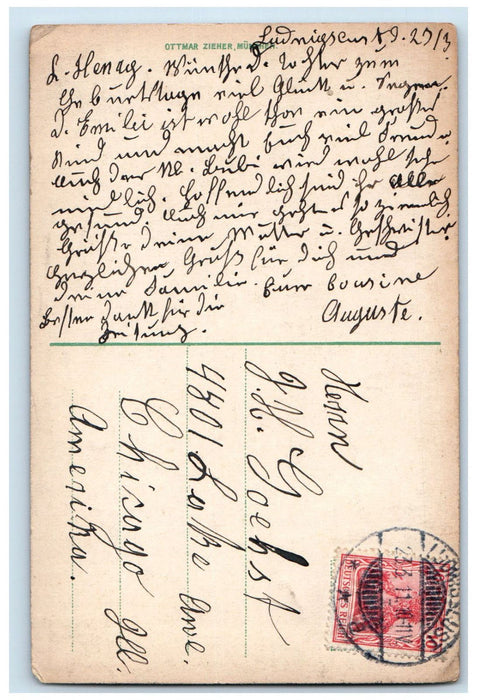 OTTMAR ZIEHER, MÜNCHEN
Ludwigslust d. 29/3.
L. Henry. Wünsche d. Tochter zum
Geburtstage viel Glück u. Segen.
D. Emilei ist wohl schon ein großes
Kind und macht Euch viel Freude
auch der kl. Bubi wird wohl sehr
niedlich. Hoffendlich sind Ihr alle
gesund, Auch mir geht es so ziemlich
Grüße deine Mutter u. Geschwister
Herzlichen Gruß für dich und
deine Familie. Eure Cousine
Besten Dank für die Auguste.
Zeitung.
Herrn
J. H. Goehst
4501 Lake Ave.
Chicago Ill.
Amerika.
DEUTSCHES REICH